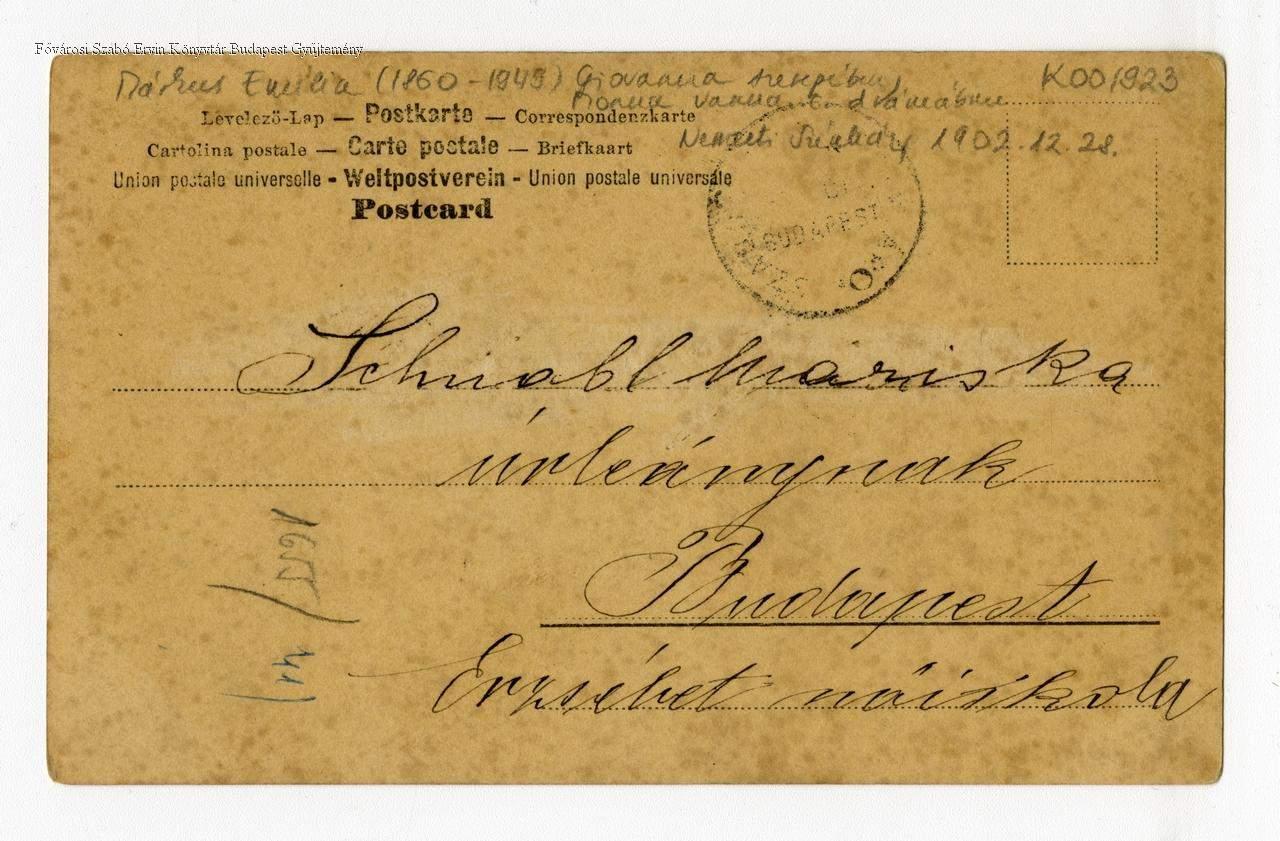 Fővárosi Szabó Ervin Könyvtár Budapest Gyűjtemény
Márkus Emilia (1860-1949) Giovanna szerepében K001923
Monna Vanna c. drámában
Levelező-Lap — Postkarte — Correspondenzkarte
Nemzeti Színház 1902.12.28.
Cartolina postale — Carte postale — Briefkaart
Union postale universelle - Weltpostverein - Union postale universale
Postcard
BUDAPEST
Schnabl Mariska
úrleánynak
Budapest
Erzsébet nőiskola